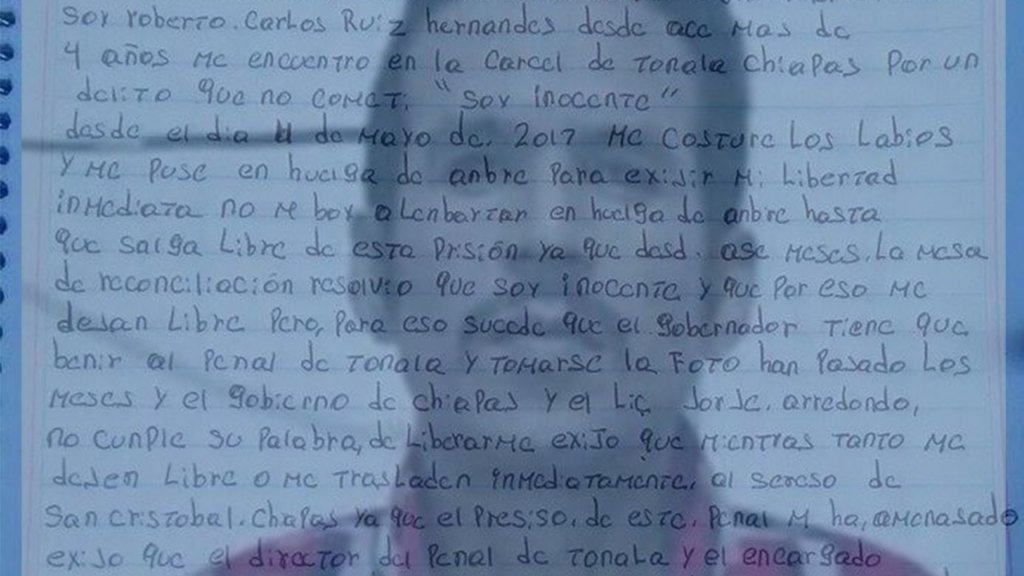 Soy roberto. Carlos Ruiz hernandes desde ace Mas de
4 años me encuentro en la Carcel de Tonala Chiapas Por un
delito que no comet. "Soy inocente"
desde el dia 11 de Mayo de. 2017 Me Costure Los Labios
Y Me Puse en huelga de anbre Para exijir Mi Libertad
inmediata no me boy a Lenbartar en huelga de anbre hasta
que salga Libre de esta Prisión ya que desd. ase meses. La mesa
de reconciliación resolvio que soy inocente y que Por eso me
dejan Libre Pero, Para eso sucede que el gobernador tiene que
benir al Penal de Tonala y tomarse la Foto han Pasado Los
Meses y el gobierno de chiapas y el Lic. Jorje. arredondo,
no cunple su Palabra, de Liberarme exijo que mientras tanto me
dejen Libre o me trasladen inmediatamente. al sereso de
San Cristobal. Chapas ya que el Presiso. de este. Penal M ha, amenasado
exijo que el director del Penal de Tonala y el encargado